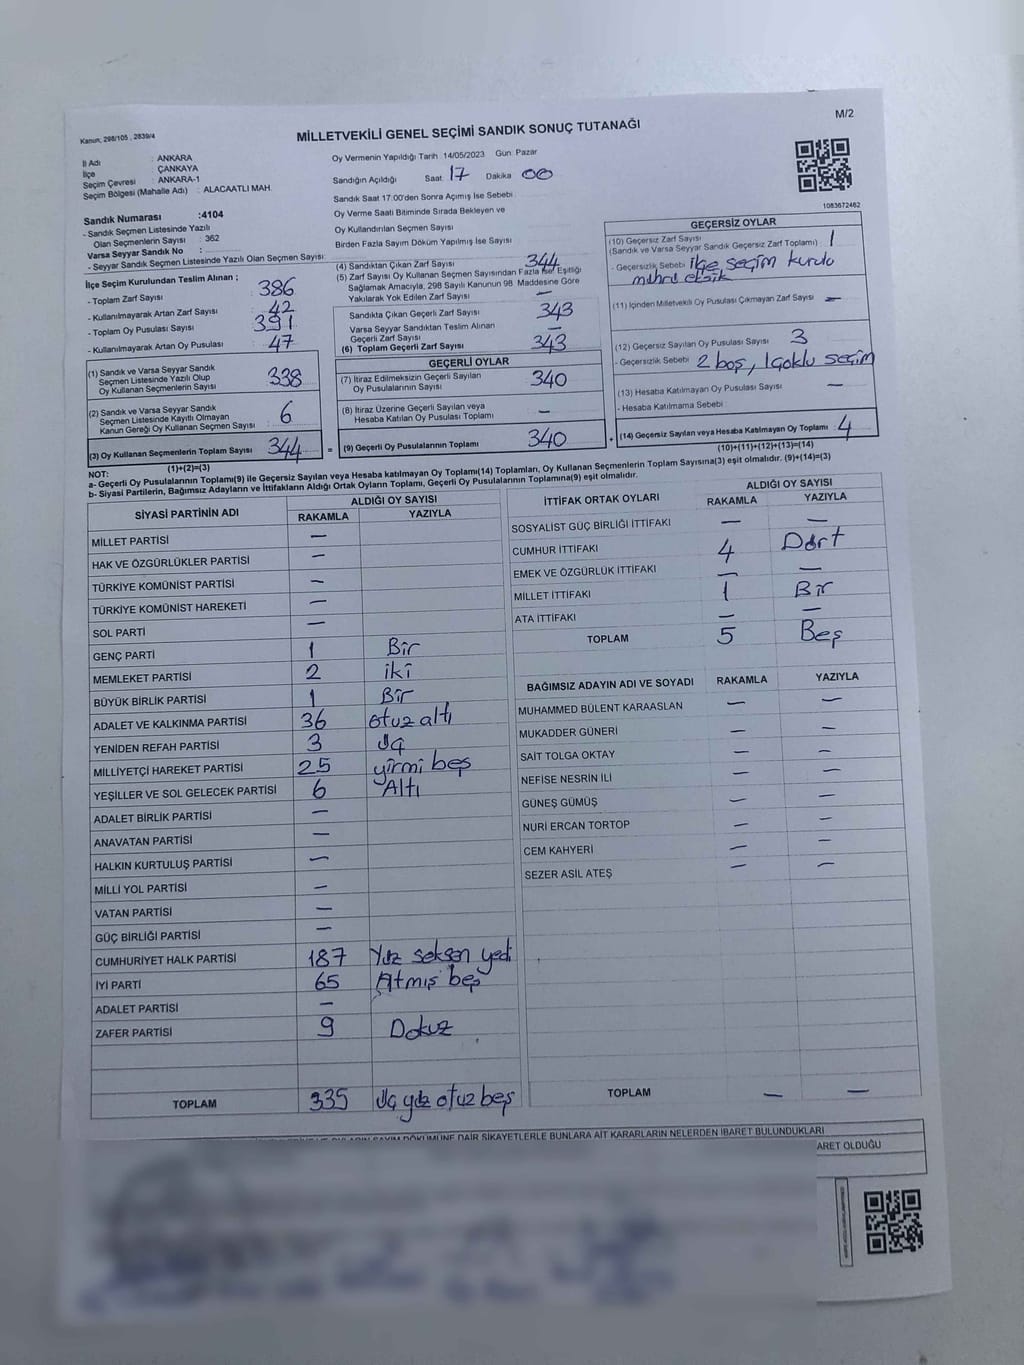 Kanun; 298/105 , 2839/4
M/2
MİLLETVEKİLİ GENEL SEÇİMİ SANDIK SONUÇ TUTANAĞI
İl Adı : ANKARA
İlçe : ÇANKAYA
Seçim Çevresi : ANKARA-1
Seçim Bölgesi (Mahalle Adı) : ALACAATLI MAH.
Sandık Numarası :4104
- Sandık Seçmen Listesinde Yazılı
Olan Seçmenlerin Sayısı : 362
Varsa Seyyar Sandık No :
- Seyyar Sandık Seçmen Listesinde Yazılı Olan Seçmen Sayısı:
Oy Vermenin Yapıldığı Tarih :14/05/2023 Gün: Pazar
Sandığın Açıldığı Saat 17 Dakika 00
Sandık Saat 17:00'den Sonra Açımış İse Sebebi
Oy Verme Saati Bitiminde Sırada Bekleyen ve
Oy Kullandırılan Seçmen Sayısı
Birden Fazla Sayım Döküm Yapılmış İse Sayısı
1083672462
İlçe Seçim Kurulundan Teslim Alınan ;
- Toplam Zarf Sayısı 386
- Kullanılmayarak Artan Zarf Sayısı 42
- Toplam Oy Pusulası Sayısı 391
- Kullanılmayarak Artan Oy Pusulası 47
(1) Sandık ve Varsa Seyyar Sandık
Seçmen Listesinde Yazılı Olup
Oy Kullanan Seçmenlerin Sayısı 338
(2) Sandık ve Varsa Seyyar Sandık
Seçmen Listesinde Kayıtlı Olmayan
Kanun Gereği Oy Kullanan Seçmen Sayısı : 6
(3) Oy Kullanan Seçmenlerin Toplam Sayısı 344 =
(1)+(2)=(3)
(4) Sandıktan Çıkan Zarf Sayısı 344
(5) Zarf Sayısı Oy Kullanan Seçmen Sayısından Fazla İse; Eşitliği
Sağlamak Amacıyla, 298 Sayılı Kanunun 98. Maddesine Göre
Yakılarak Yok Edilen Zarf Sayısı —
Sandıkta Çıkan Geçerli Zarf Sayısı 343
Varsa Seyyar Sandıktan Teslim Alınan
Geçerli Zarf Sayısı —
(6) Toplam Geçerli Zarf Sayısı 343
GEÇERLİ OYLAR
(7) İtiraz Edilmeksizin Geçerli Sayılan
Oy Pusulalarının Sayısı 340
(8) İtiraz Üzerine Geçerli Sayılan veya
Hesaba Katılan Oy Pusulası Toplamı —
(9) Geçerli Oy Pusulalarının Toplamı 340 +
GEÇERSİZ OYLAR
(10) Geçersiz Zarf Sayısı
(Sandık ve Varsa Seyyar Sandık Geçersiz Zarf Toplamı) : 1
- Geçersizlik Sebebi ilçe seçim kurulu
mührü eksik
(11) İçinden Milletvekili Oy Pusulası Çıkmayan Zarf Sayısı —
(12) Geçersiz Sayılan Oy Pusulası Sayısı 3
- Geçersizlik Sebebi 2 boş, 1 çoklu seçim
(13) Hesaba Katılmayan Oy Pusulası Sayısı —
- Hesaba Katılmama Sebebi
(14) Geçersiz Sayılan veya Hesaba Katılmayan Oy Toplamı : 4
(10)+(11)+(12)+(13)=(14)
NOT:
a- Geçerli Oy Pusulalarının Toplamı(9) ile Geçersiz Sayılan veya Hesaba katılmayan Oy Toplamı(14) Toplamları, Oy Kullanan Seçmenlerin Toplam Sayısına(3) eşit olmalıdır. (9)+(14)=(3)
b- Siyasi Partilerin, Bağımsız Adayların ve İttifakların Aldığı Ortak Oyların Toplamı, Geçerli Oy Pusulalarının Toplamına(9) eşit olmalıdır.
SİYASİ PARTİNİN ADI ALDIĞI OY SAYISI
RAKAMLA YAZIYLA
MİLLET PARTİSİ —
HAK VE ÖZGÜRLÜKLER PARTİSİ —
TÜRKİYE KOMÜNİST PARTİSİ —
TÜRKİYE KOMÜNİST HAREKETİ —
SOL PARTİ —
GENÇ PARTİ 1 Bir
MEMLEKET PARTİSİ 2 iki
BÜYÜK BİRLİK PARTİSİ 1 Bir
ADALET VE KALKINMA PARTİSİ 36 otuz altı
YENİDEN REFAH PARTİSİ 3 Üç
MİLLİYETÇİ HAREKET PARTİSİ 25 yirmi beş
YEŞİLLER VE SOL GELECEK PARTİSİ 6 Altı
ADALET BİRLİK PARTİSİ —
ANAVATAN PARTİSİ —
HALKIN KURTULUŞ PARTİSİ —
MİLLİ YOL PARTİSİ —
VATAN PARTİSİ —
GÜÇ BİRLİĞİ PARTİSİ —
CUMHURİYET HALK PARTİSİ 187 Yüz seksen yedi
İYİ PARTİ 65 Altmış beş
ADALET PARTİSİ —
ZAFER PARTİSİ 9 Dokuz
TOPLAM 335 Üç yüz otuz beş
İTTİFAK ORTAK OYLARI ALDIĞI OY SAYISI
RAKAMLA YAZIYLA
SOSYALİST GÜÇ BİRLİĞİ İTTİFAKI — —
CUMHUR İTTİFAKI 4 Dört
EMEK VE ÖZGÜRLÜK İTTİFAKI — —
MİLLET İTTİFAKI 1 Bir
ATA İTTİFAKI — —
TOPLAM 5 Beş
BAĞIMSIZ ADAYIN ADI VE SOYADI RAKAMLA YAZIYLA
MUHAMMED BÜLENT KARAASLAN — —
MUKADDER GÜNERİ — —
SAİT TOLGA OKTAY — —
NEFİSE NESRİN İLİ — —
GÜNEŞ GÜMÜŞ — —
NURİ ERCAN TORTOP — —
CEM KAHYERİ — —
SEZER ASİL ATEŞ — —
TOPLAM — —
DÖKÜMÜNE DAİR ŞİKAYETLERLE BUNLARA AİT KARARLARIN NELERDEN İBARET BULUNDUKLARI
ARET OLDUĞU